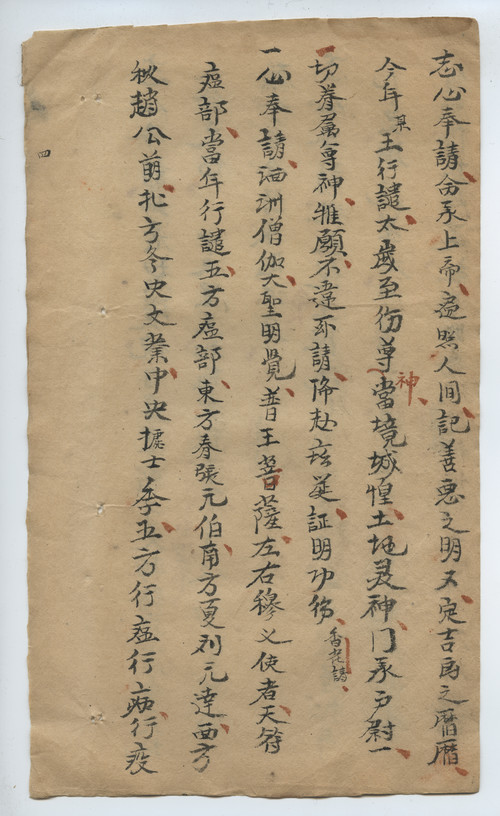 志心奉請命承上帝遍照人间記善惡之明又定吉凶之曆曆
今年某王行譴太歲至德尊神當境城惶土地灵神门承户尉一
切眷属尊神惟願不違所請降赴茲筵証明功德香花請
一心奉請泗洲僧伽大聖明覺普王菩薩左右穆义使者天符
瘟部當年行譴五方瘟部東方春張元伯南方夏刘元達西方
秋趙公萌北方冬史文業中央據士季五方行瘟行病行疫
四